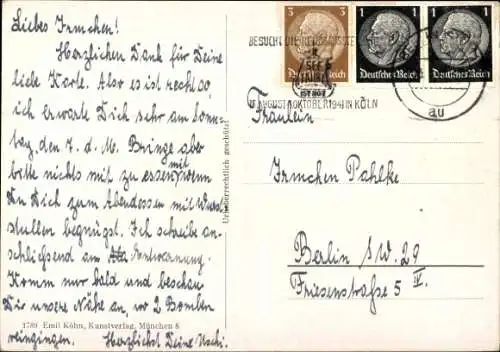 Liebes Irmchen!
Herzlichen Dank für Deine
liebe Karte. Also es ist recht so,
ich erwarte Dich sehr am Sonn-
tag, den 7. d. M. Bringe aber
bitte nichts mit zu essen, wenn
mit
Du Dich zum Abendessen mit Wurst-
stullen begnügst. Ich schreibe an-
schließend am
Komm nur bald und beschau
Dir unsere Nähe an, wo 2 Bomben
reingingen. Herzlichst Deine Uschi.
1789 Emil Köhn, Kunstverlag, München 8
Urheberrechtlich geschützt!
3 3
Deutsches Reich
1 1
Deutsches Reich
1 1
Deutsches Reich
BESUCHT DIE
IST NOT
AUGUST OKTOBER 1941 IN KÖLN
au
Fräulein
Irmchen Pahlke
Berlin S.W. 29
Friesenstraße 5 IV.